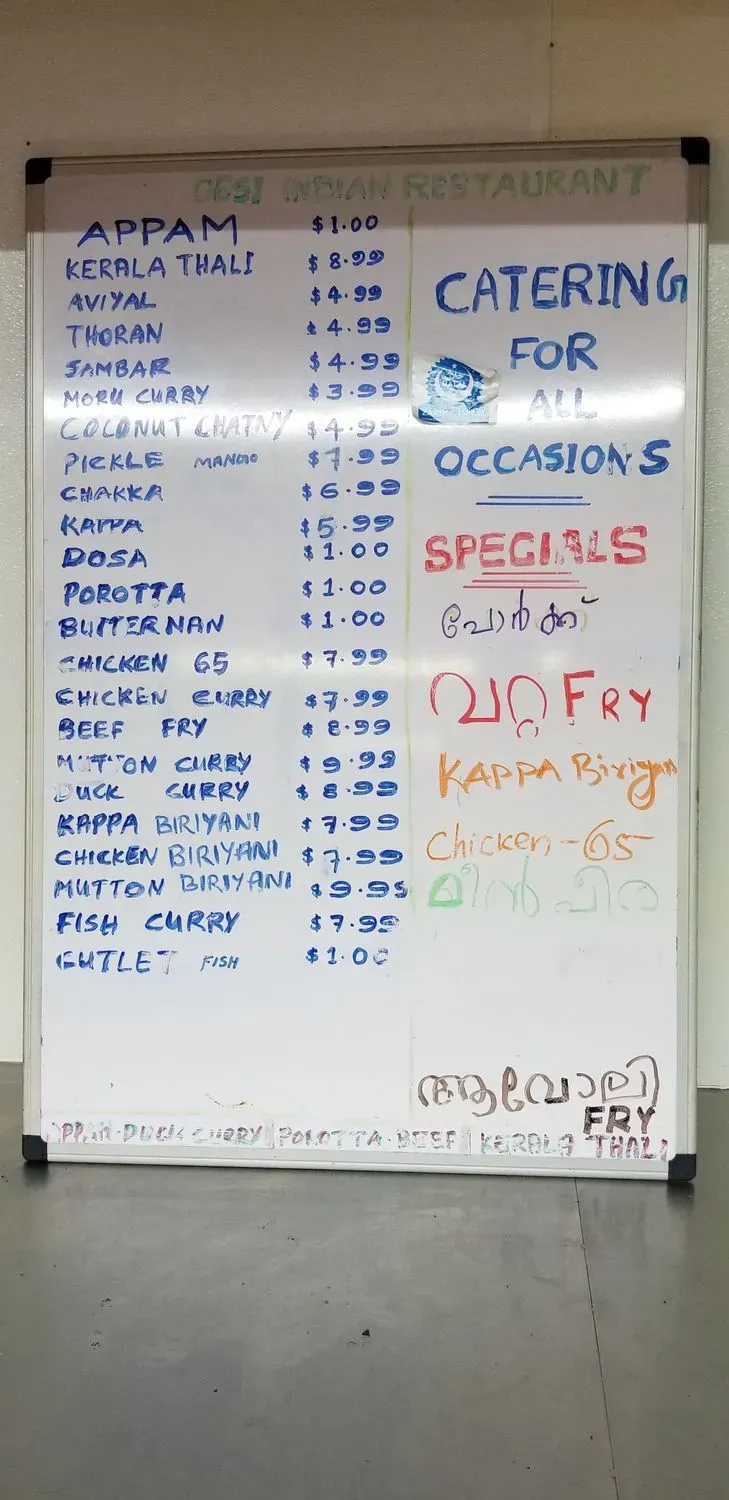 DESI INDIAN RESTAURANT
APPAM $1.00
KERALA THALI $8.99
AVIYAL $4.99
THORAN $4.99
SAMBAR $4.99
MORU CURRY $3.99
COCONUT CHATNY $4.99
PICKLE MANGO $7.99
CHAKKA $6.99
KAPPA $5.99
DOSA $1.00
POROTTA $1.00
BUTTER NAN $1.00
CHICKEN 65 $7.99
CHICKEN CURRY $7.99
BEEF FRY $8.99
MUTTON CURRY $9.99
DUCK CURRY $8.99
KAPPA BIRIYANI $7.99
CHICKEN BIRIYANI $7.99
MUTTON BIRIYANI $9.99
FISH CURRY $7.99
CUTLET FISH $1.00
CATERING
FOR
ALL
OCCASIONS
SPECIALS
പോർക്ക്
വറ്റ FRY
KAPPA Biriyani
Chicken-65
മീൻ പീര
ആവോലി
FRY
APPAM-DUCK CURRY | POROTTA-BEEF | KERALA THALI